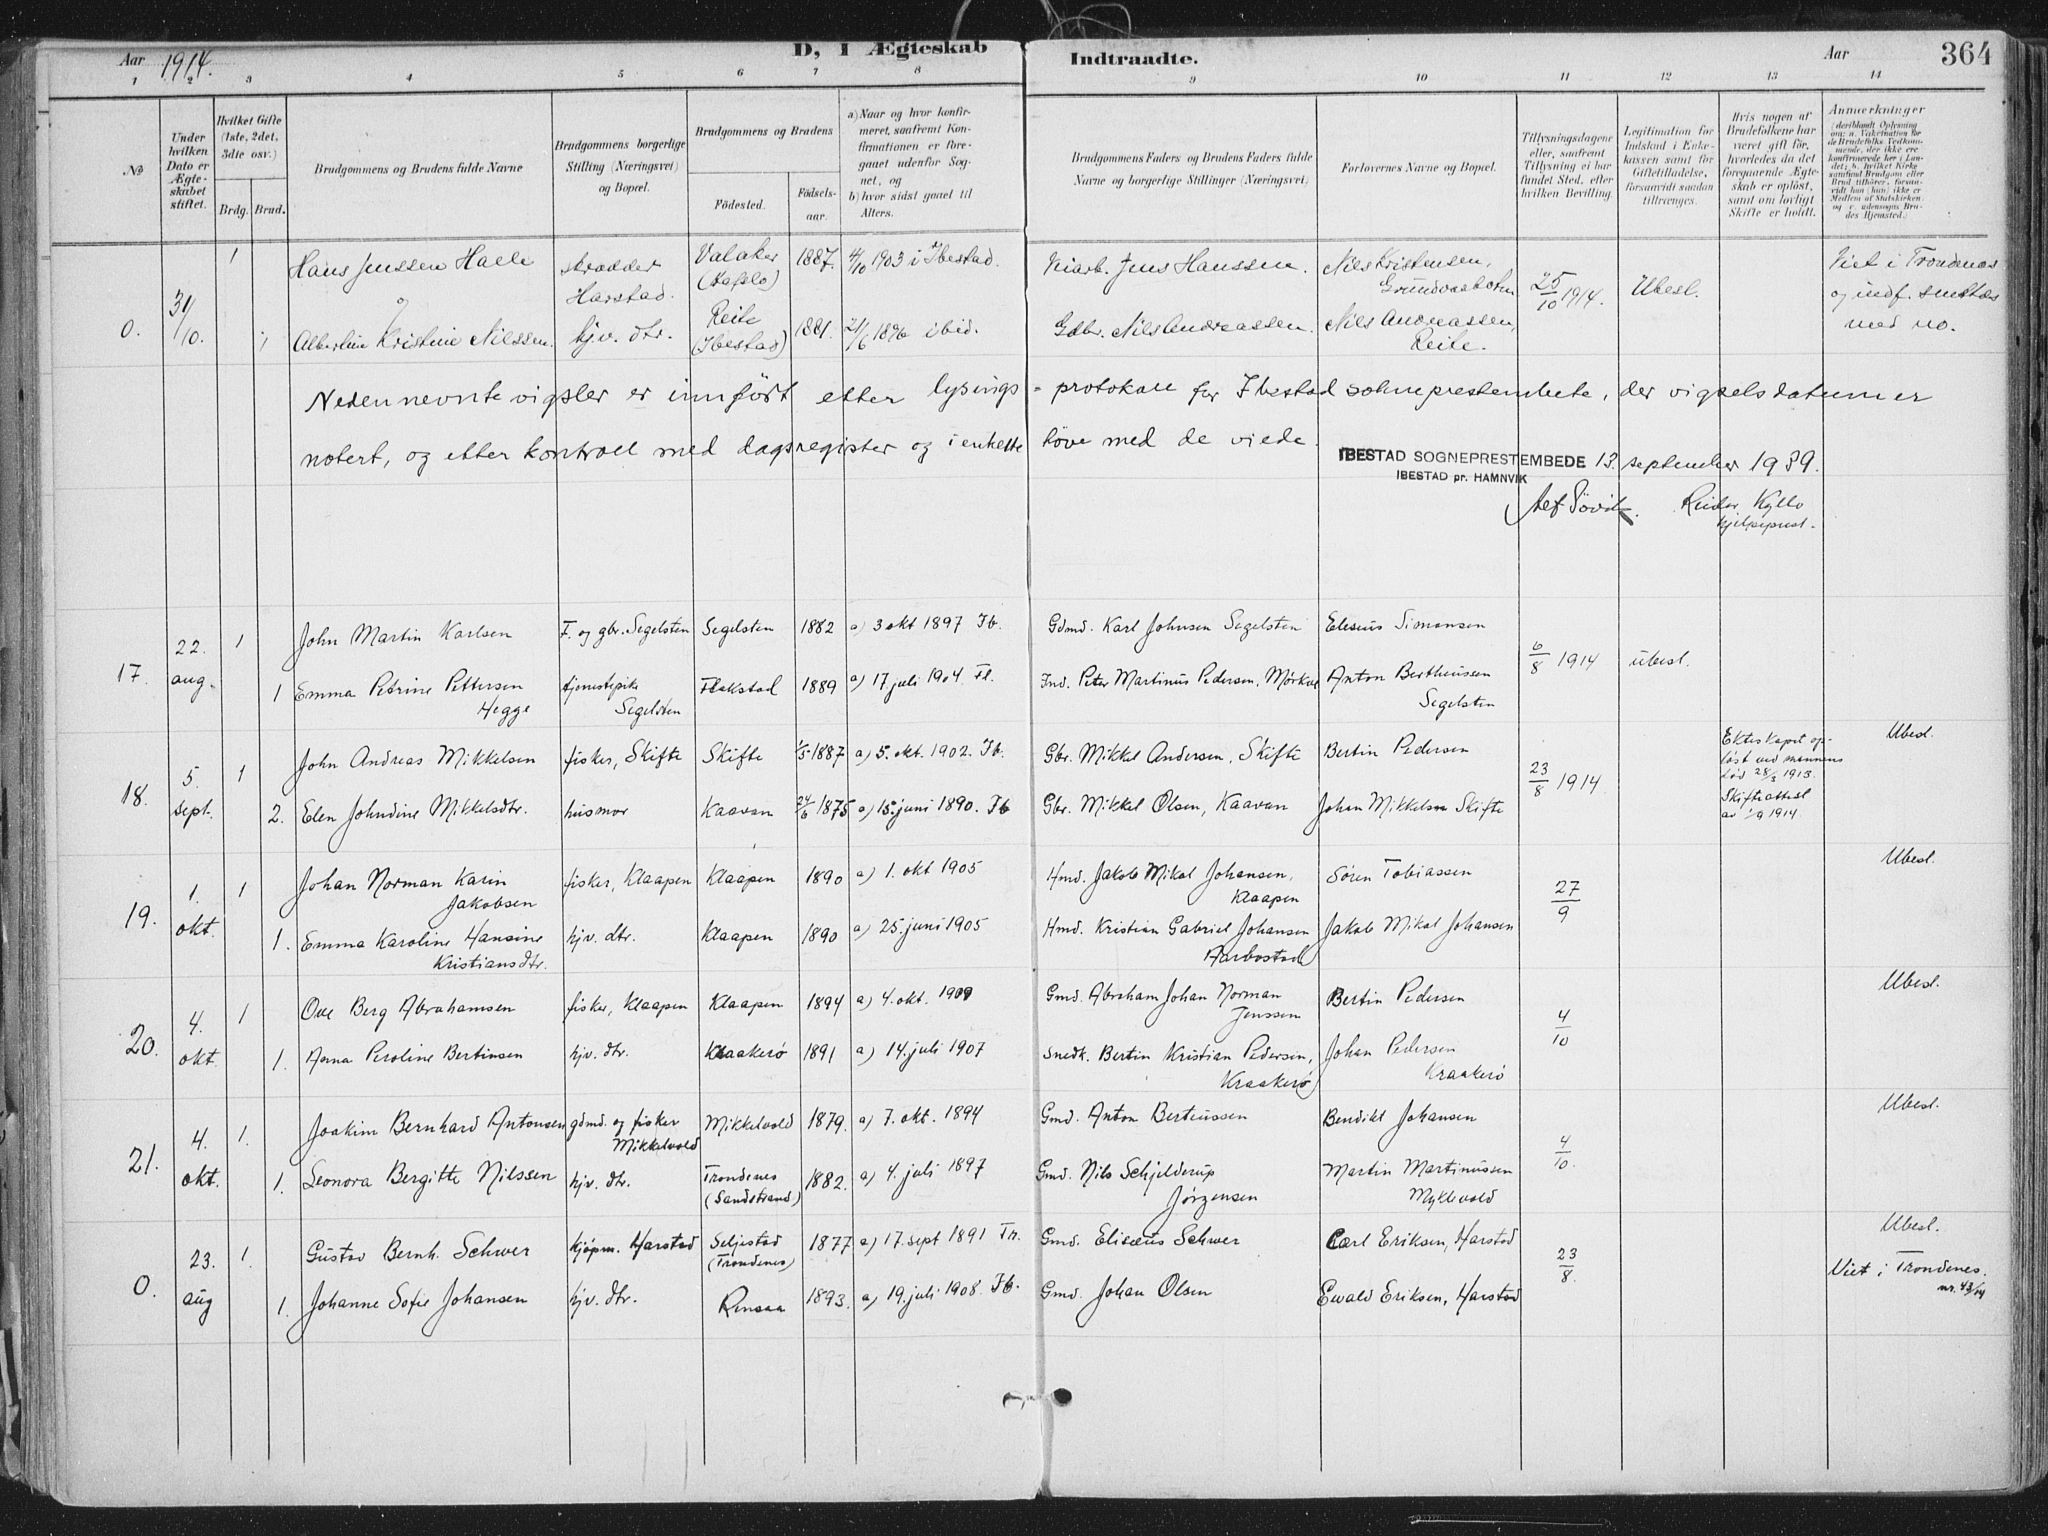 Aar 1914.
D, I Ægteskab Indtraadte.
Aar
364
1 2 3 4 5 6 7 8 9 10 11 12 13 14
No
Under hvilken Dato er Ægteskabet stiftet.
Hvilket Gifte (1ste, 2det, 3die osv.)
Brdg. Brud.
Brudgommens og Brudens fulde Navne
Brudgommens borgerlige Stilling (Næringsvei) og Bopæl.
Brudgommens og Brudens
Fødested.
Fødselsaar.
a) Naar og hvor konfirmeret, saafremt Konfirmationen er foregaaet udenfor Sognet, og
b) hvor sidst gaaet til Alters.
Brudgommens Faders og Brudens Faders fulde Navne og borgerlige Stillinger (Næringsvei)
Forlovernes Navne og Bopæl.
Tillysningsdagene eller, saafremt Tillysning ei har fundet Sted, efter hvilken Bevilling.
Legitimation for Indskud i Enkekassen samt for Giftetilladelse, forsaavidt saadan tiltrænges.
Hvis nogen af Brudefolkene har været gift før, hvorledes da det foregaaende Ægteskab er opløst, samt om lovligt Skifte er holdt.
Anmerkninger
(deriblandt Oplysning om: a. Vakcination for de Brudefolks Vedkommende, der ikke ere konfirmerede her i Landet; b. hvilket Kirkesamfund Brudgom eller Brud tilhører, forsaavidt han (hun) ikke er Medlem af Statskirken, og c. udensogns Brudes Hjemsted.)
0. 31/10. 1 Hans Jenssen Halle skrædder Harstad. Valaker (Hafslo) 1887. 4/10 1903 i Ibestad. Jens Hanssen. Nils Kristensen, 25/10 1914. Ubesl. Viet i Trondenes og indf. smstds med no.
1 Albertine Kristine Nilssen. hjv. dtr. Reite (Ibestad) 1881. 21/6 1896 ibid. Gdbr. Nils Andreassen. Nils Andreassen, Reite.
Nedennevnte vigsler er innført etter lysings-protokoll for Ibestad sokneprestembete, der vigselsdatum er
notert, og etter kontroll med dagsregister og i enkelte høve med de viede.
IBESTAD SOGNEPRESTEMBEDE 13. september 1939.
IBESTAD pr. HAMNVIK
Reidar Kyllo
hjelpeprest.
17. 22. aug. 1 John Martin Karlsen F. og gbr. Segelsten Segelsten 1882 a) 3 okt 1897 Ib. Gdmd. Karl Johnsen Segelsten Eleseus Simonsen 6/8 1914 ubesl.
1 Emma Petrine Pettersen Hegge tjenestepike Segelsten Flakstad 1889 a) 17 juli 1904 Fl. Ind. Peter Martinus Pedersen, Anton Bertheussen Segelsten
18. 5. sept. 1 John Andreas Mikkelsen fisker, Skifte Skifte 1/5 1887 a) 5. okt. 1902. Ib. Gbr. Mikkel Andersen, Skifte Bertin Pedersen 23/8 1914 Ekteskapet opløst ved mannens død 28/3 1913. Skifteattest av 1/9 1914. Ubesl.
2. Elen Johndine Mikkelsdtr. husmor Kaavan 24/6 1875 a) 15. juni 1890. Ib Gbr. Mikkel Olsen, Kaavan Johan Mikkelsen Skifte
19. 1. okt. 1 Johan Norman Karin Jakobsen fisker, Klaapen Klaapen 1890 a) 1. okt 1905 Hmd. Jakob Mikal Johansen, Klaapen Søren Tobiassen 27/9 Ubesl.
1. Emma Karoline Hansine Kristiansdtr. hjv. dtr. Klaapen 1890 a) 25. juni 1905 Hmd. Kristian Gabriel Johansen Aarbostad Jakob Mikal Johansen
20. 4. okt. 1 Ove Berg Abrahamsen fisker, Klaapen Klaapen 1894 a) 4. okt. 1909 Gmd. Abraham Johan Norman Jenssen Bertin Pedersen 4/10 Ubesl.
1. Anna Peroline Bertinsen hjv. dtr. Kraakerø 1891 a) 14. juli 1907 Snedk. Bertin Kristian Pedersen, Kraakerø Johan Pedersen Kraakerø
21. 4. okt. 1. Joakim Bernhard Antonsen gdmd. og fisker Mikkelvold Mikkelvold 1879. a) 7. okt. 1894 Gmd. Anton Berteussen Bendikt Johansen 4/10. Ubesl.
1. Leonora Bergitte Nilssen hjv. dtr. Trondenes (Sandstrand) 1882. a) 4. juli 1897 Gmd. Nils Schjelderup Jørgensen Martin Martinussen Myklevold
0. 23. aug 1. Gustav Bernh. Schwer kjøpm. Harstad Seljestad (Trondenes) 1877 a) 17. sept 1891 Tr. Gmd. Elisæus Schwer Carl Eriksen, Harstad 23/8. Ubesl. Viet i Trondenes. nr. 43/14
1. Johanne Sofie Johansen hjv. dtr. Rensaa 1893. a) 19. juli 1908. Ib. Gmd. Johan Olsen Ewald Eriksen, Harstad